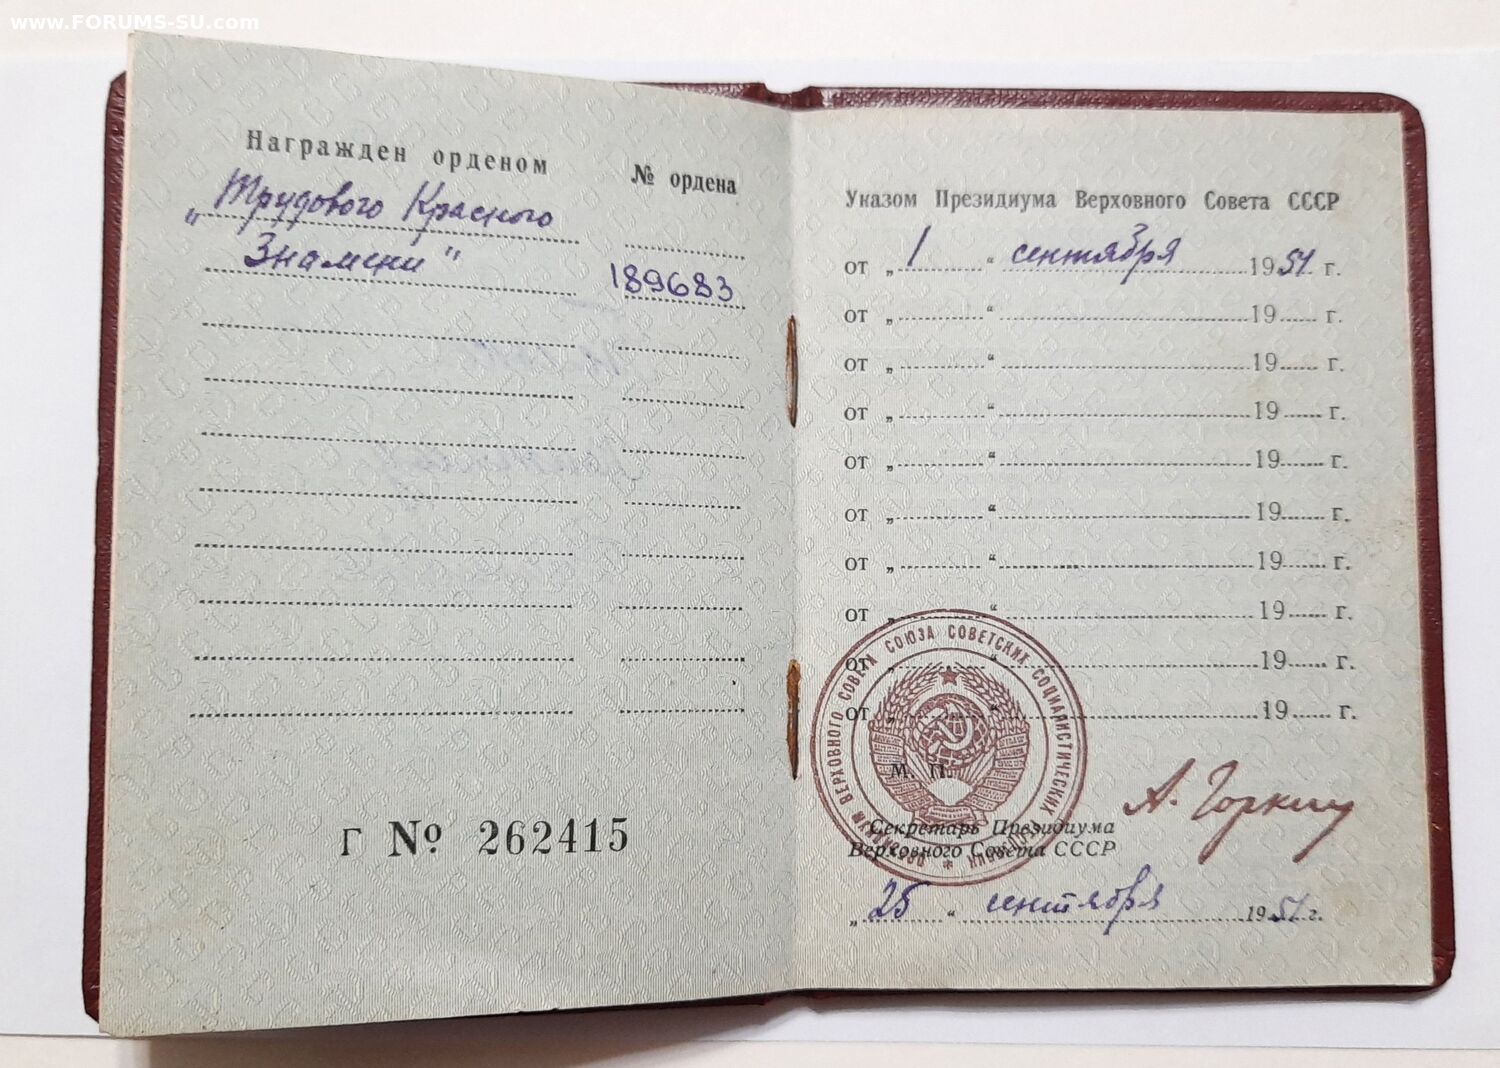 www.FORUMS-SU.com
Награжден орденом № ордена
„Трудового Красного
Знамени" 189683
Г № 262415
Указом Президиума Верховного Совета СССР
от „ 1 “ сентября 1951 г.
от „ “ 19 г.
от „ “ 19 г.
от „ “ 19 г.
от „ “ 19 г.
от „ “ 19 г.
от „ “ 19 г.
от „ “ 19 г.
от „ “ 19 г.
от „ “ 19 г.
ПРЕЗИДИУМ ВЕРХОВНОГО СОВЕТА СОЮЗА СОВЕТСКИХ СОЦИАЛИСТИЧЕСКИХ РЕСПУБЛИК
М. П.
А. Горкин
Секретарь Президиума
Верховного Совета СССР
„ 25 “ сентября 1951 г.